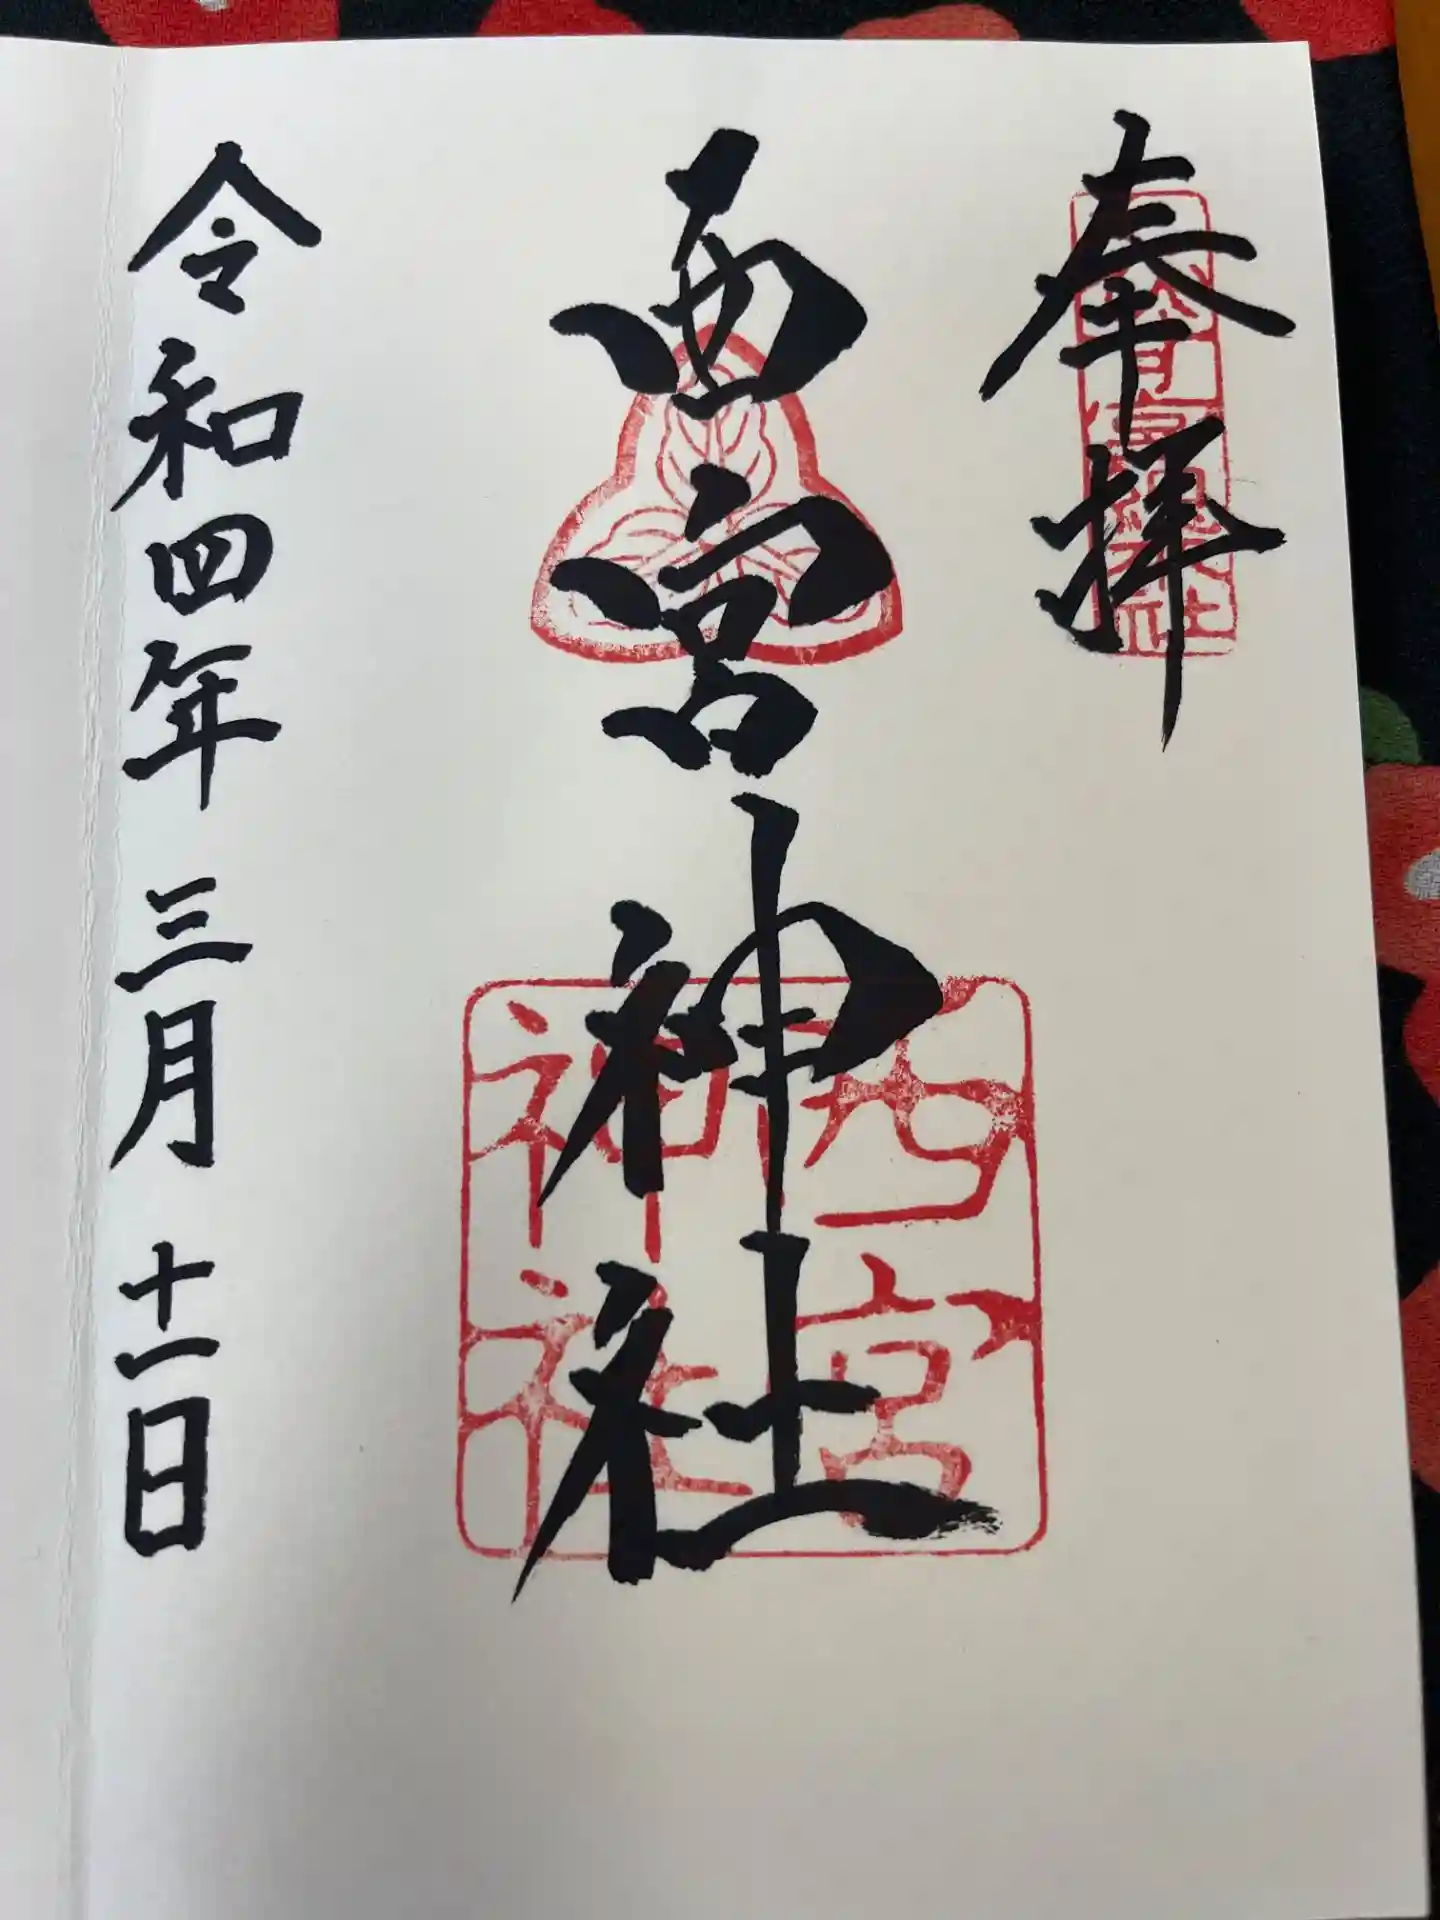 奉拝
西宮神社
西宮
神社
令和四年 三月 十一日